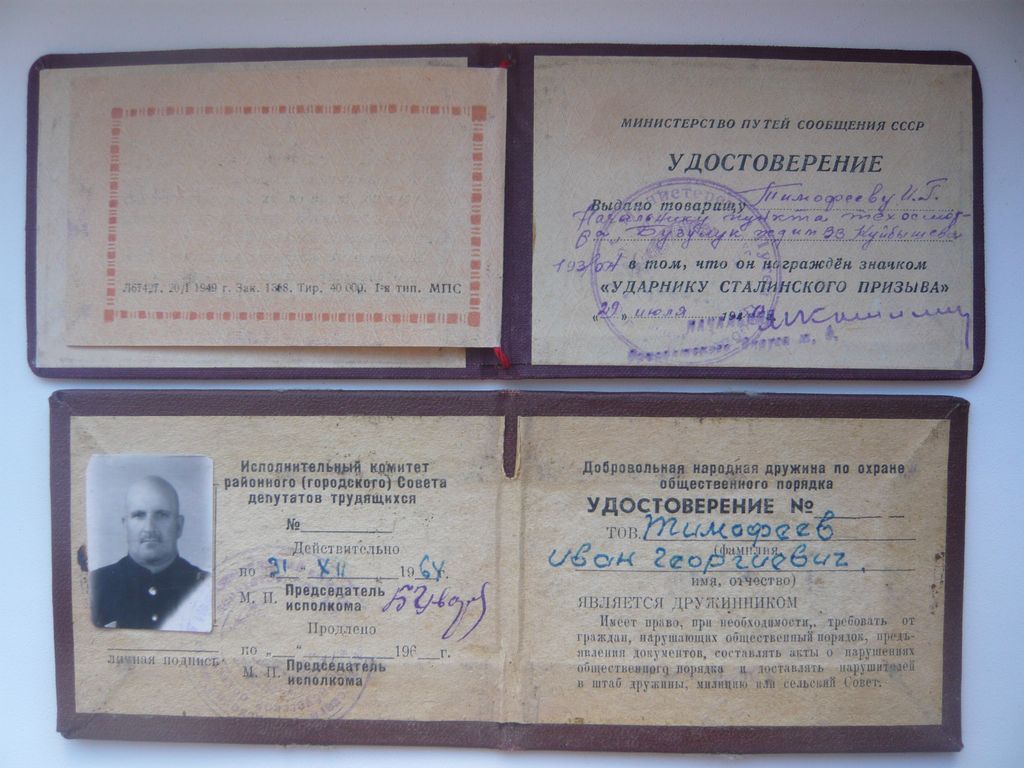 Л67427. 20/I 1949 г. Зак. 1368. Тир. 40 000. 1-я тип. МПС
МИНИСТЕРСТВО ПУТЕЙ СООБЩЕНИЯ СССР
УДОСТОВЕРЕНИЕ
Выдано товарищу Тимофееву И.Г.
Начальнику пункта техосмот-
ра Бузулук
в том, что он награждён значком
«УДАРНИКУ СТАЛИНСКОГО ПРИЗЫВА»
«29» июля 194
Исполнительный комитет
районного (городского) Совета
депутатов трудящихся
№
Действительно
по 31 - XII 196
М. П. Председатель
исполкома
Продлено
по „ “ 196 г.
М. П. Председатель
исполкома
личная подпись
Добровольная народная дружина по охране
общественного порядка
УДОСТОВЕРЕНИЕ №
ТОВ. Тимофеев
(фамилия,
Иван Георгиевич
имя, отчество)
ЯВЛЯЕТСЯ ДРУЖИННИКОМ
Имеет право, при необходимости, требовать от
граждан, нарушающих общественный порядок, предъ-
явления документов, составлять акты о нарушениях
общественного порядка и доставлять нарушителей
в штаб дружины, милицию или сельский Совет.